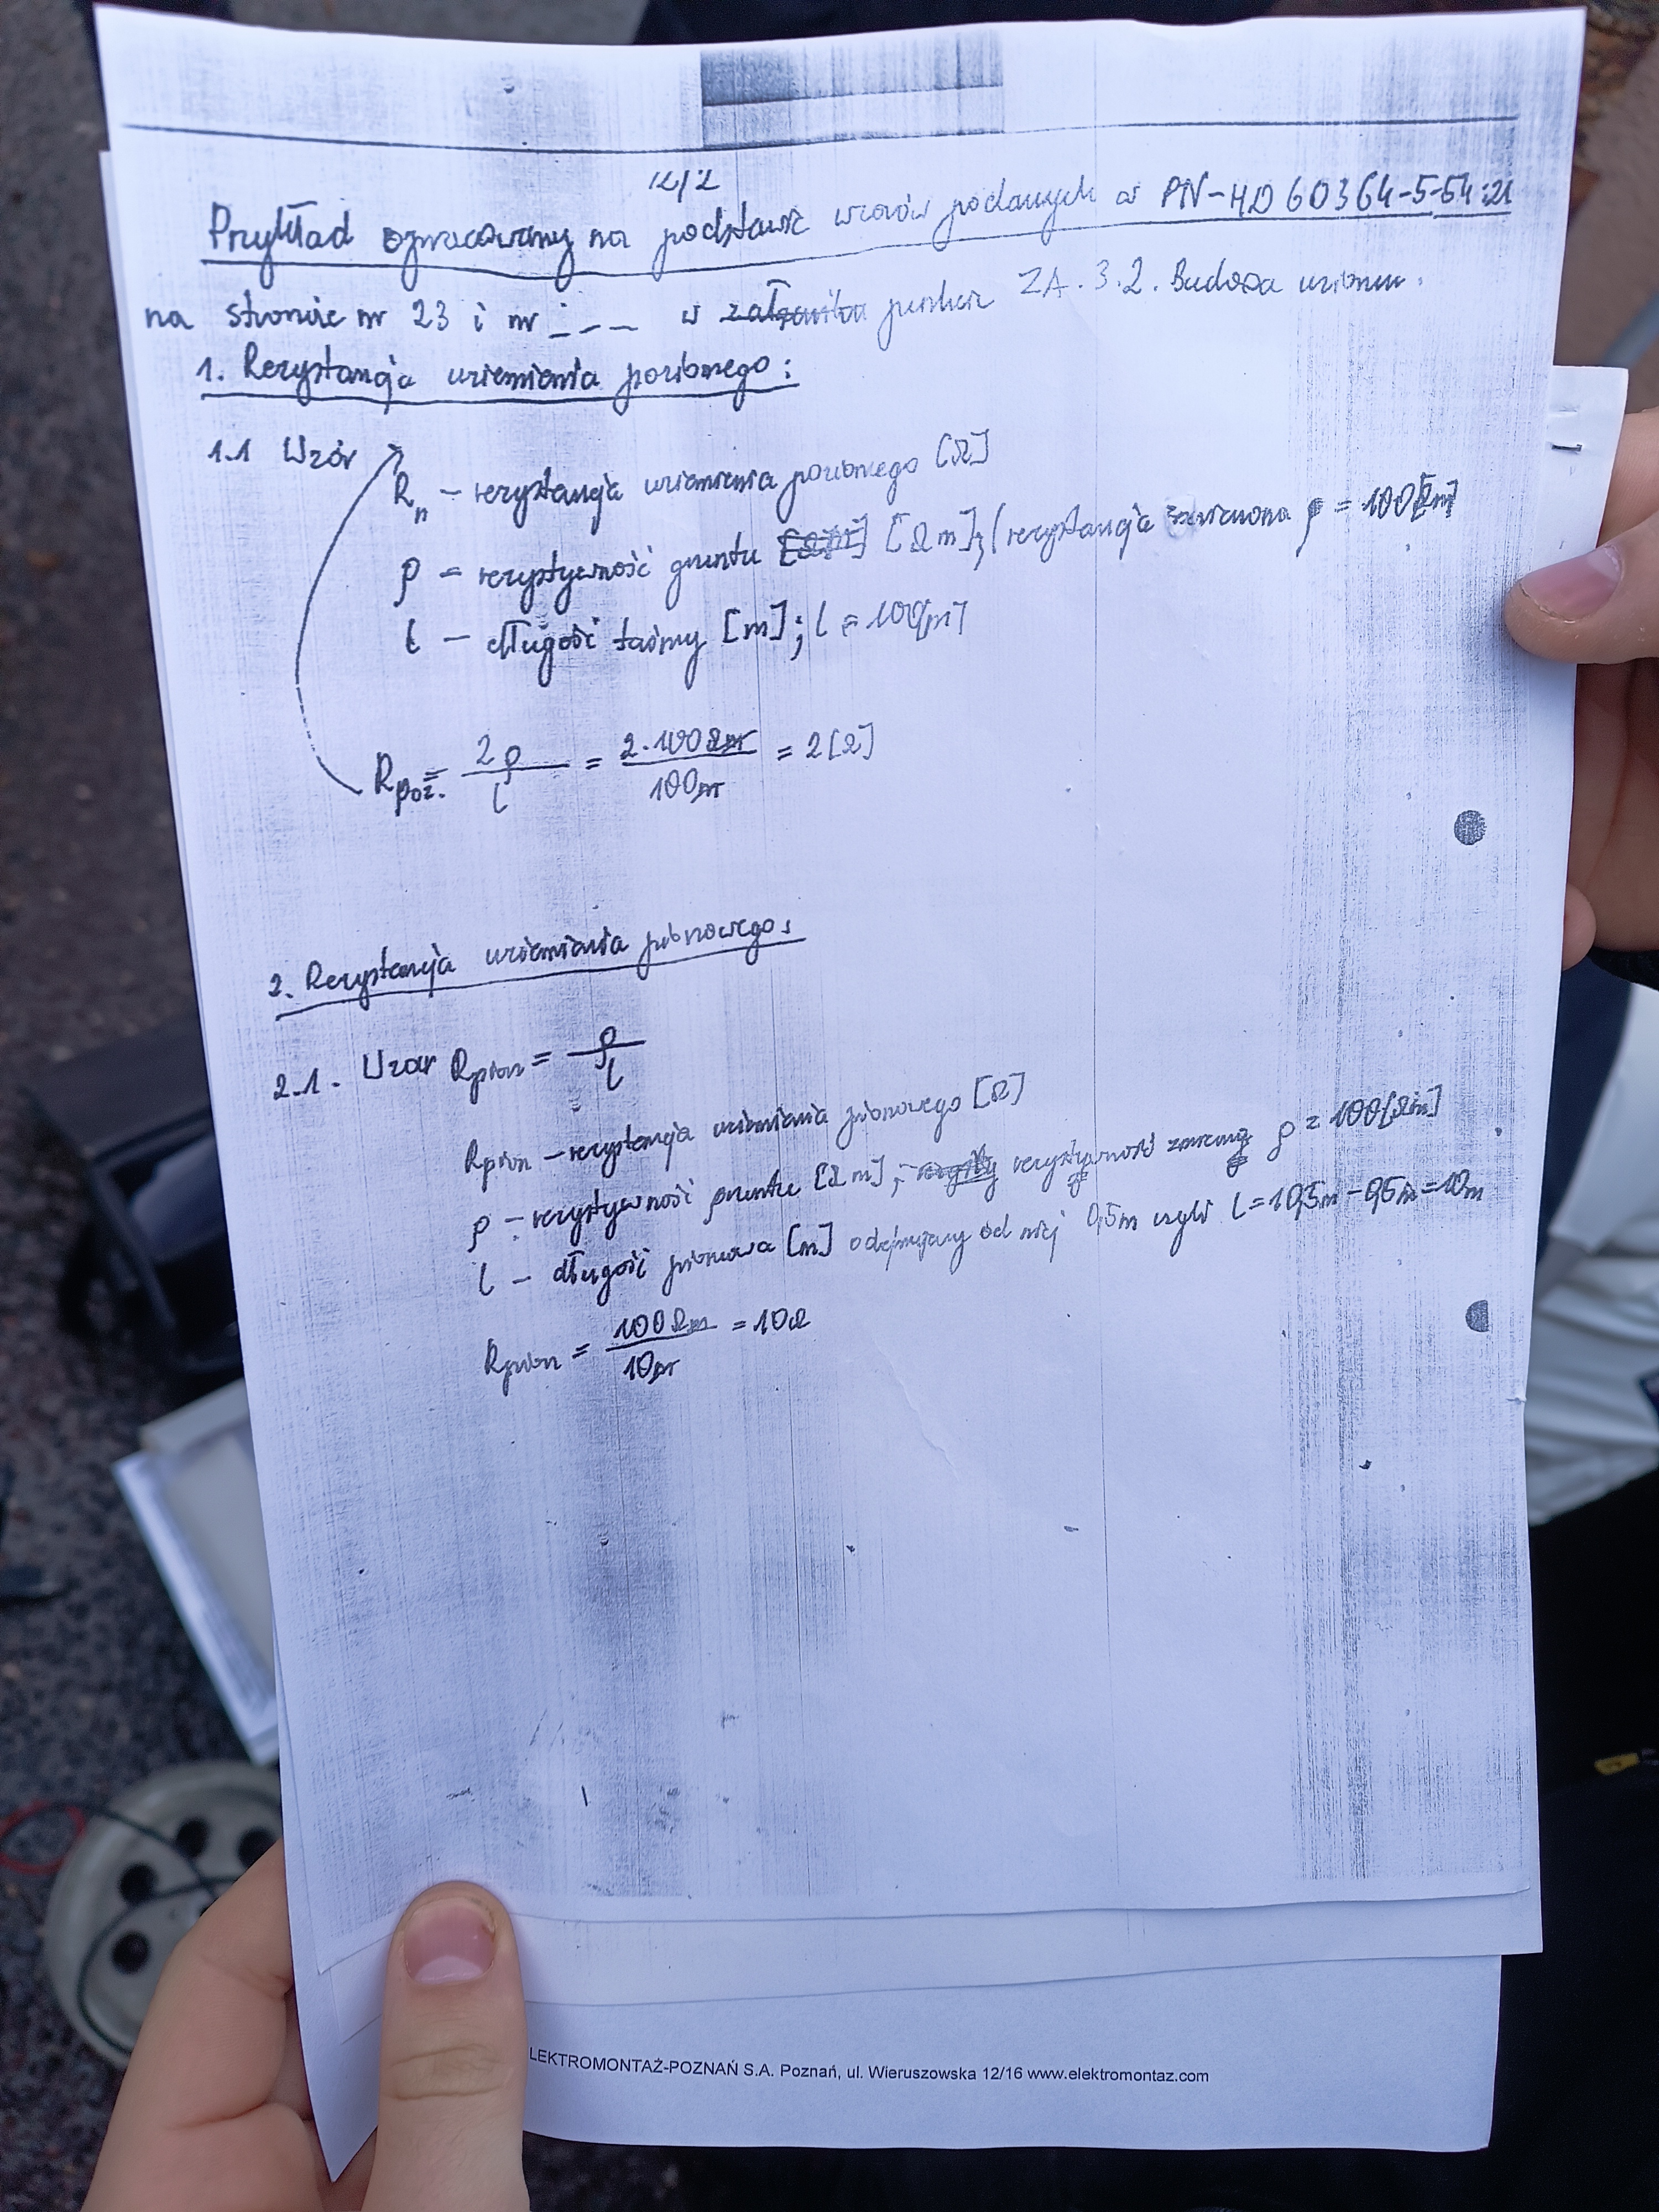 12/2
Przykład opracowany na podstawie wzorów podanych w PN-HD 60364-5-54:
na stronie nr 23 i nr _ _ _ w punkcie ZA.3.2. Budowa uziomu.
1. Rezystancja uziemienia poziomego:
1.1 Wzór
Rn – rezystancja uziemienia poziomego [Ω]
ρ – rezystywność gruntu [Ωm]; (rezystancja ρ = 100[Ωm]
l – długość taśmy [m]; l = 100[m]
Rpoz. = 2ρ/l = 2·100Ωm/100m = 2[Ω]
2. Rezystancja uziemienia pionowego:
2.1. Wzór Rpion = ρ/l
Rpion – rezystancja uziemienia pionowego [Ω]
ρ – rezystywność gruntu [Ωm]; rezystywność ρ = 100[Ωm]
l – długość pionowa [m] odejmujemy od niej 0,5m czyli l = 10,5m – 0,5m = 10m
Rpion = 100Ωm/10m = 10Ω
LEKTROMONTAŻ-POZNAŃ S.A. Poznań, ul. Wieruszowska 12/16 www.elektromontaz.com